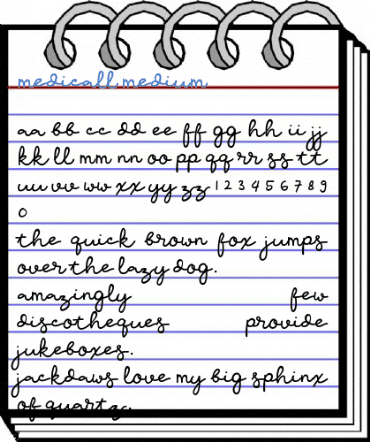 medicall medium
aa bb cc dd ee ff gg hh ii jj
kk ll mm nn oo pp qq rr ss tt
uu vv ww xx yy zz 1 2 3 4 5 6 7 8 9
0
the quick brown fox jumps
over the lazy dog.
amazingly few
discotheques provide
jukeboxes.
jackdaws love my big sphinx
of quartz.